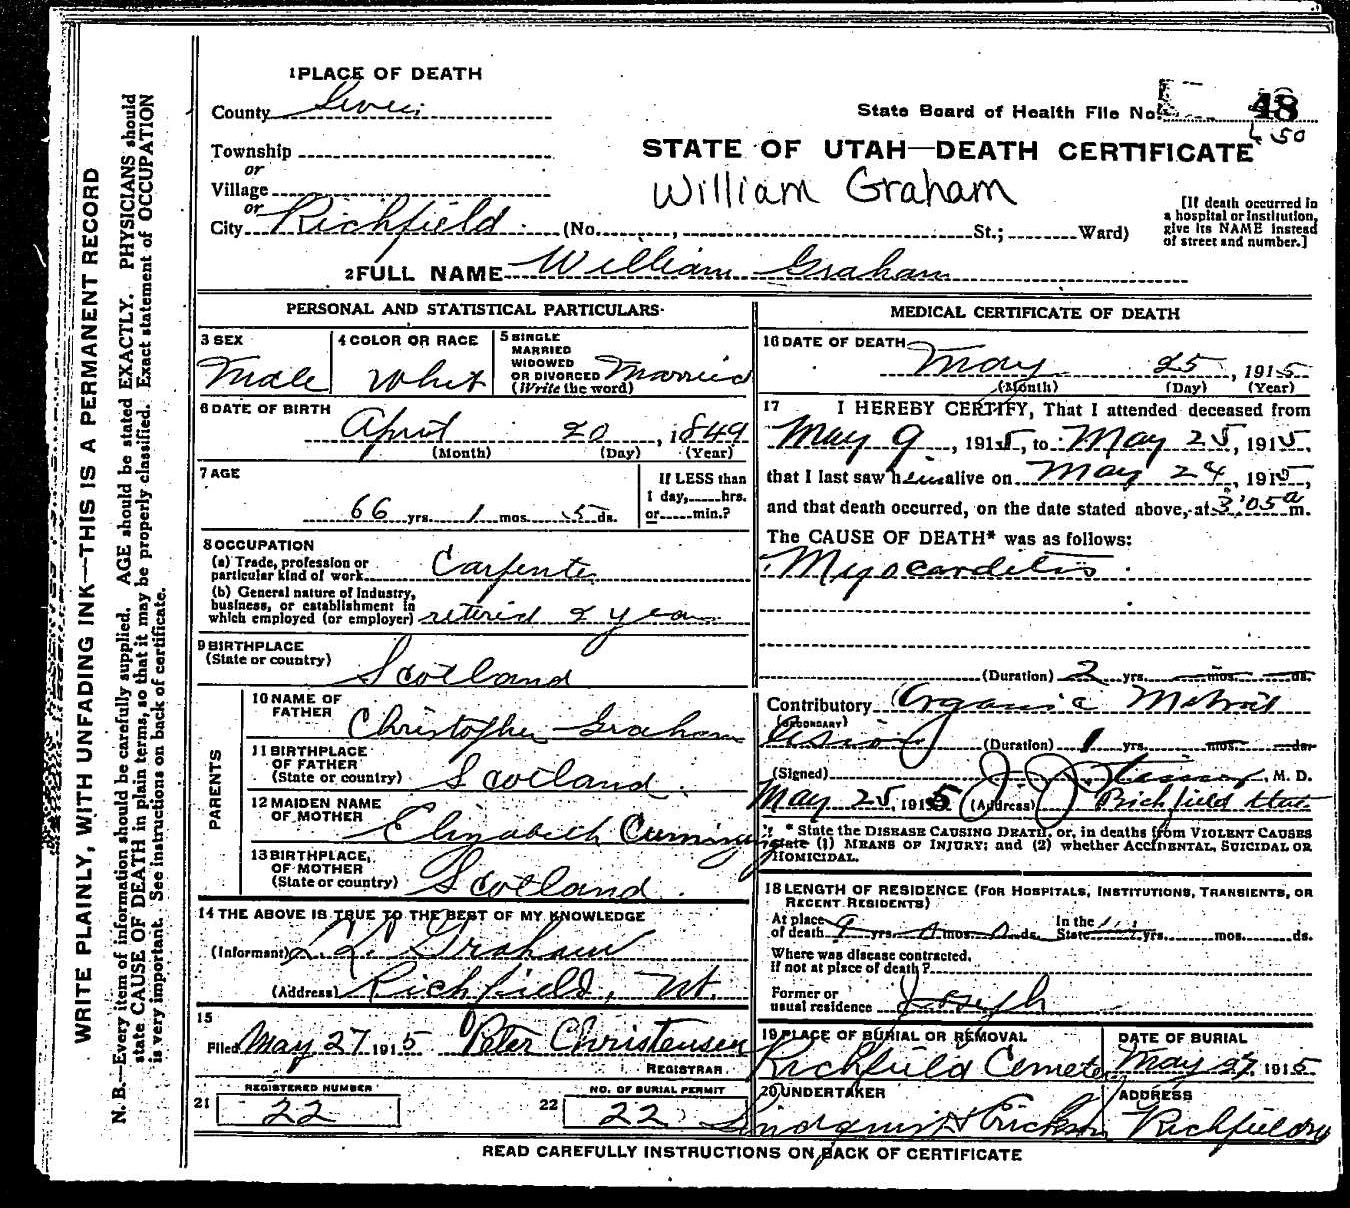 1 PLACE OF DEATH
County Sevier
State Board of Health File No. 48
450
Township
or
Village
or
City Richfield (No. , St.; Ward)
STATE OF UTAH—DEATH CERTIFICATE
William Graham
[If death occurred in
a hospital or institution,
give its NAME instead
of street and number.]
2 FULL NAME William Graham
PERSONAL AND STATISTICAL PARTICULARS
3 SEX
Male
4 COLOR OR RACE
Whit
5 SINGLE
MARRIED
WIDOWED
OR DIVORCED
(Write the word)
Married
6 DATE OF BIRTH
April 20, 1849
(Month) (Day) (Year)
7 AGE
66 yrs. 1 mos. 5 ds.
If LESS than
1 day, hrs.
or min.?
8 OCCUPATION
(a) Trade, profession or
particular kind of work Carpenter
(b) General nature of industry,
business, or establishment in
which employed (or employer) retired 2 years
9 BIRTHPLACE
(State or country)
Scotland
PARENTS
10 NAME OF
FATHER
Christopher Graham
11 BIRTHPLACE
OF FATHER
(State or country)
Scotland
12 MAIDEN NAME
OF MOTHER
Elizabeth Cumings
13 BIRTHPLACE,
OF MOTHER
(State or country)
Scotland
14 THE ABOVE IS TRUE TO THE BEST OF MY KNOWLEDGE
(Informant) Graham
(Address) Richfield, Ut.
15
Filed May 27 1915 Peter Christensen
REGISTRAR
21 REGISTERED NUMBER
22
22 NO. OF BURIAL PERMIT
22
MEDICAL CERTIFICATE OF DEATH
16 DATE OF DEATH
May 25, 1915
(Month) (Day) (Year)
17 I HEREBY CERTIFY, That I attended deceased from
May 9, 1915, to May 25, 1915,
that I last saw him alive on May 24, 1915,
and that death occurred, on the date stated above, at 3:05 a m.
The CAUSE OF DEATH* was as follows:
Myocarditis
(Duration) 2 yrs. mos. ds.
Contributory Organic Metroil
(SECONDARY)
(Duration) 1 yrs. mos. ds.
(Signed) J. J. Steiner, M. D.
May 25, 1915 (Address) Richfield Utah
* State the DISEASE CAUSING DEATH, or, in deaths from VIOLENT CAUSES
state (1) MEANS OF INJURY; and (2) whether ACCIDENTAL, SUICIDAL OR
HOMICIDAL.
18 LENGTH OF RESIDENCE (FOR HOSPITALS, INSTITUTIONS, TRANSIENTS, OR
RECENT RESIDENTS)
At place
of death 9 yrs. mos. ds.
In the
State yrs. mos. ds.
Where was disease contracted,
if not at place of death?
Former or
usual residence Joseph
19 PLACE OF BURIAL OR REMOVAL
Richfield Cemetery
DATE OF BURIAL
May 27 1915
20 UNDERTAKER
Lindquist Erickson
ADDRESS
Richfield
READ CAREFULLY INSTRUCTIONS ON BACK OF CERTIFICATE
WRITE PLAINLY, WITH UNFADING INK—THIS IS A PERMANENT RECORD
N. B.—Every item of information should be carefully supplied. AGE should be stated EXACTLY. PHYSICIANS should
state CAUSE OF DEATH in plain terms, so that it may be properly classified. Exact statement of OCCUPATION
is very important. See instructions on back of certificate.